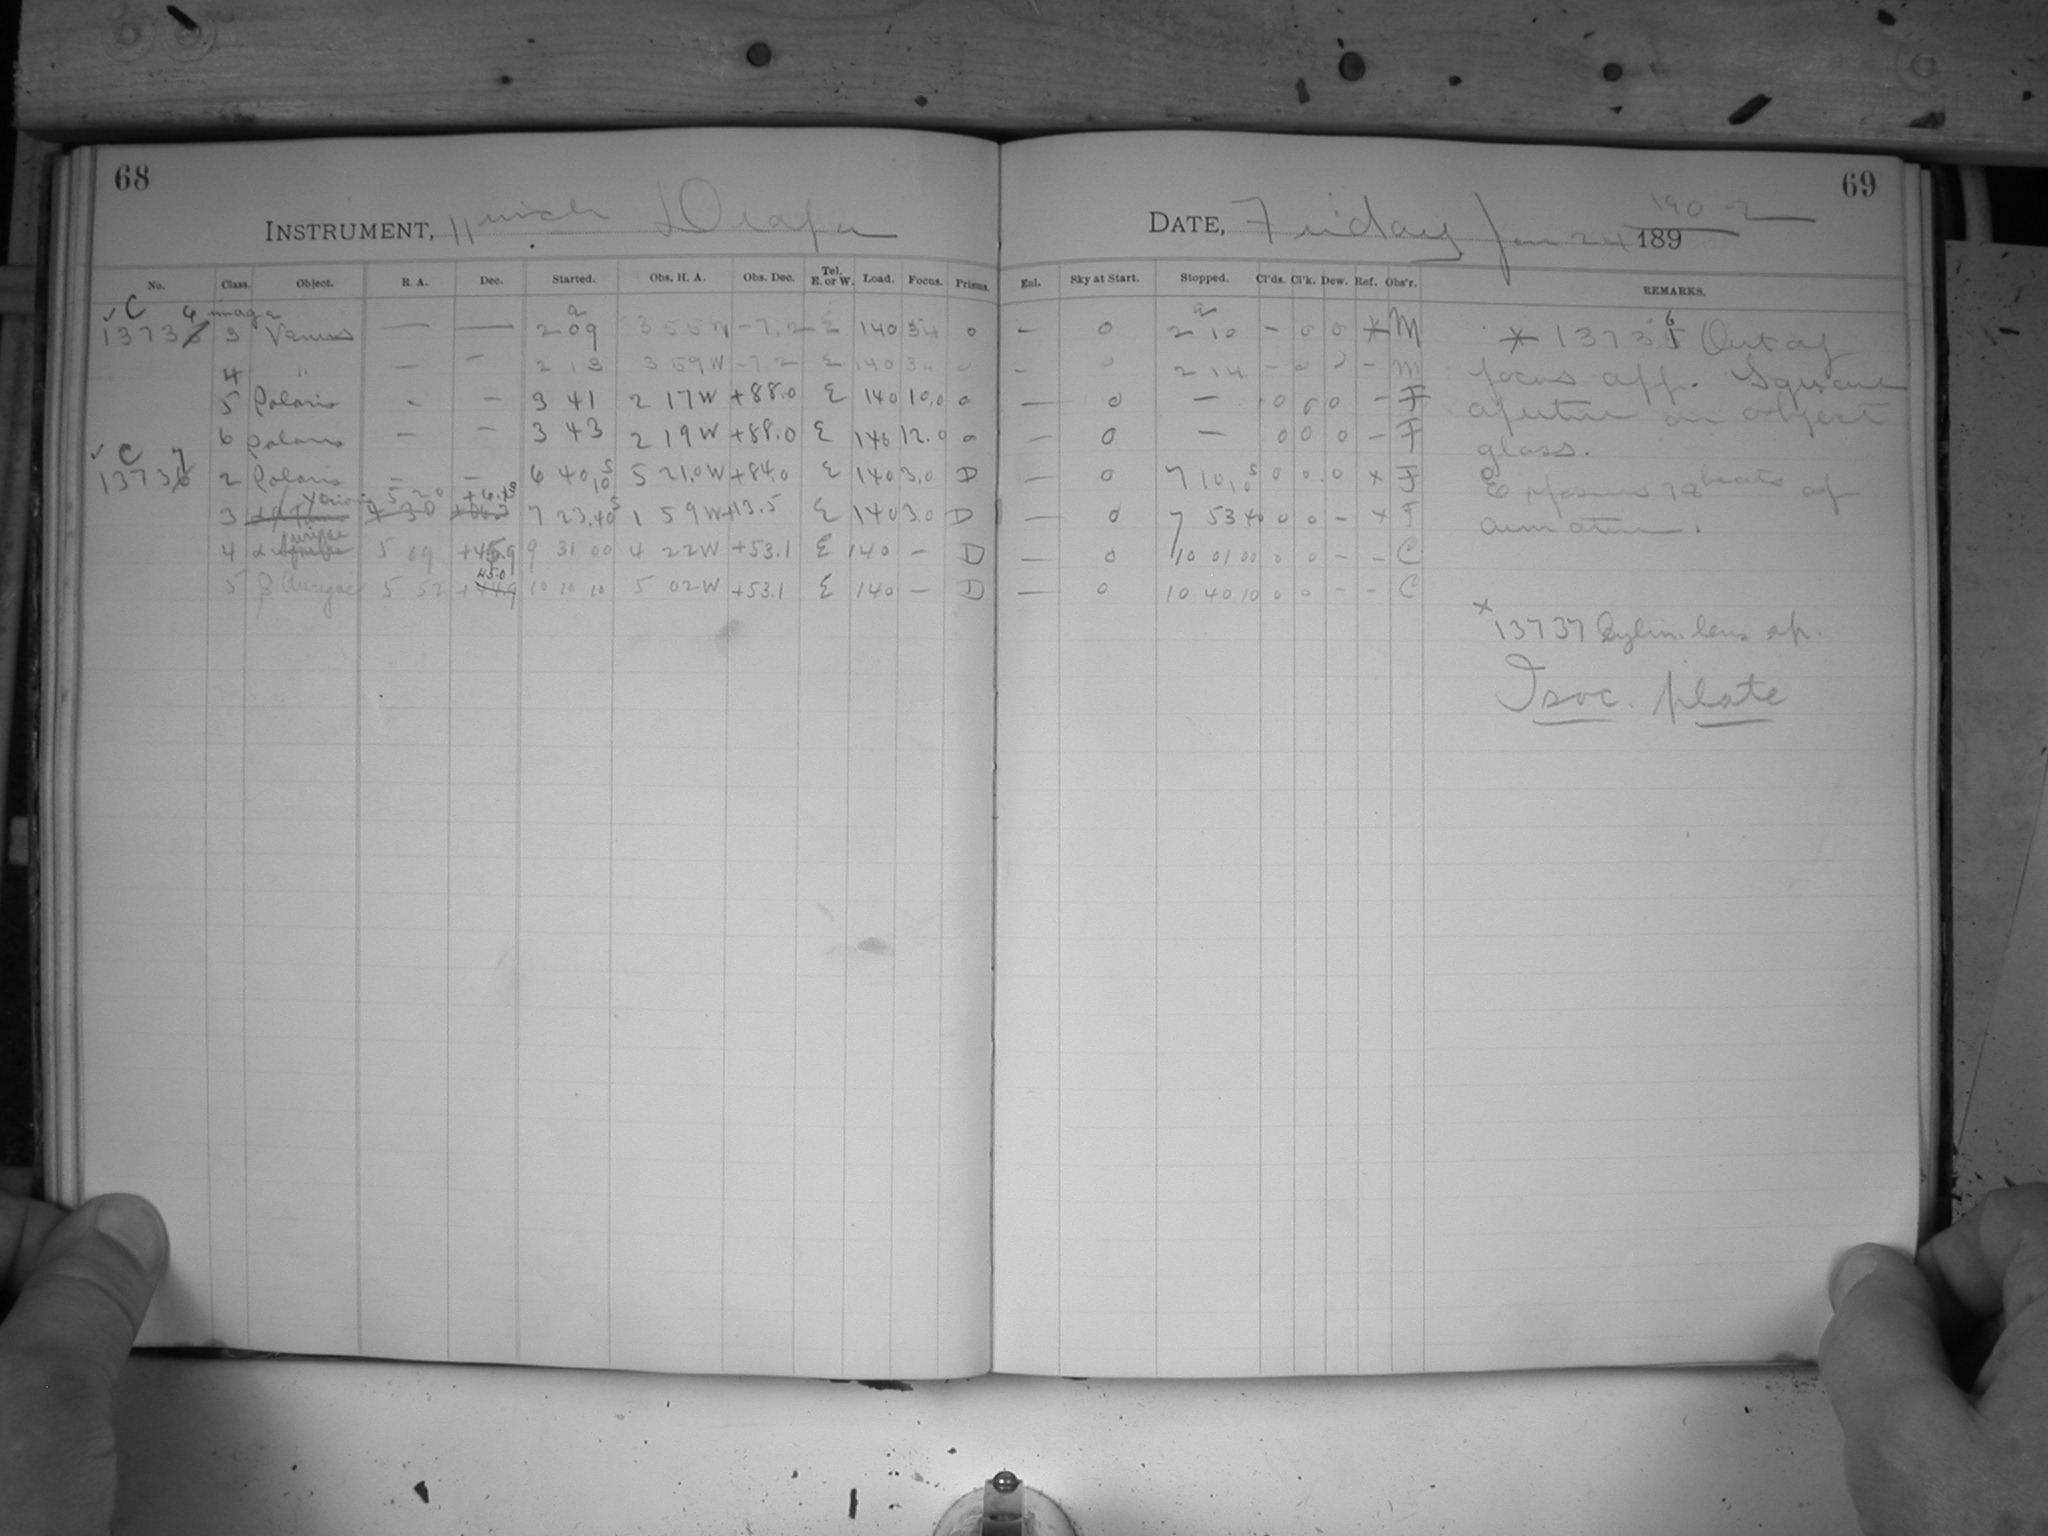 68
INSTRUMENT, 11 inch Draper
No. Class. Object. R. A. Dec. Started. Obs. H. A. Obs. Dec. Tel. E. or W. Load. Focus. Prisms.
C 6 image
13735 3 Venus — — 2 09 3 55 W -7.2 E 140 34 0
4 " — — 2 13 3 59 W -7.2 E 140 34 0
5 Polaris - — 3 41 2 17 W +88.0 E 140 10.0 0
6 Polaris — — 3 43 2 19 W +88.0 E 140 12.0 0
C 7
13736 2 Polaris — — 6 40 10 S 5 21.0 W +84.0 E 140 3.0 D
3 γ Orionis 5 20 +6.15 7 23.40 S 1 59 W +13.5 E 140 3.0 D
4 α Aurigae 5 09 +45.9 9 31 00 4 22 W +53.1 E 140 — D
5 β Aurigae 5 52 +44.9 45.0 10 10 10 5 02 W +53.1 E 140 — D
69
DATE, Friday Jan 24 189 1902
Enl. Sky at Start. Stopped. Cl'ds. Cl'k. Dew. Ref. Obs'r. REMARKS.
— 0 2 10 — 0 0 * M
- 0 2 14 — 0 0 — M
— 0 — 0 0 0 — F
— 0 — 0 0 0 — F
— 0 7 10 10 S 0 0 0 x F
— 0 7 53 40 0 0 — x F
— 0 10 01 00 0 0 — — C
— 0 10 40 10 0 0 — — C
* 13735 6 Out of
focus app. Square
aperture on object
glass.
Exposures 78 beats of
armature.
x
13737 Cylin. lens ap.
Isoc. plate